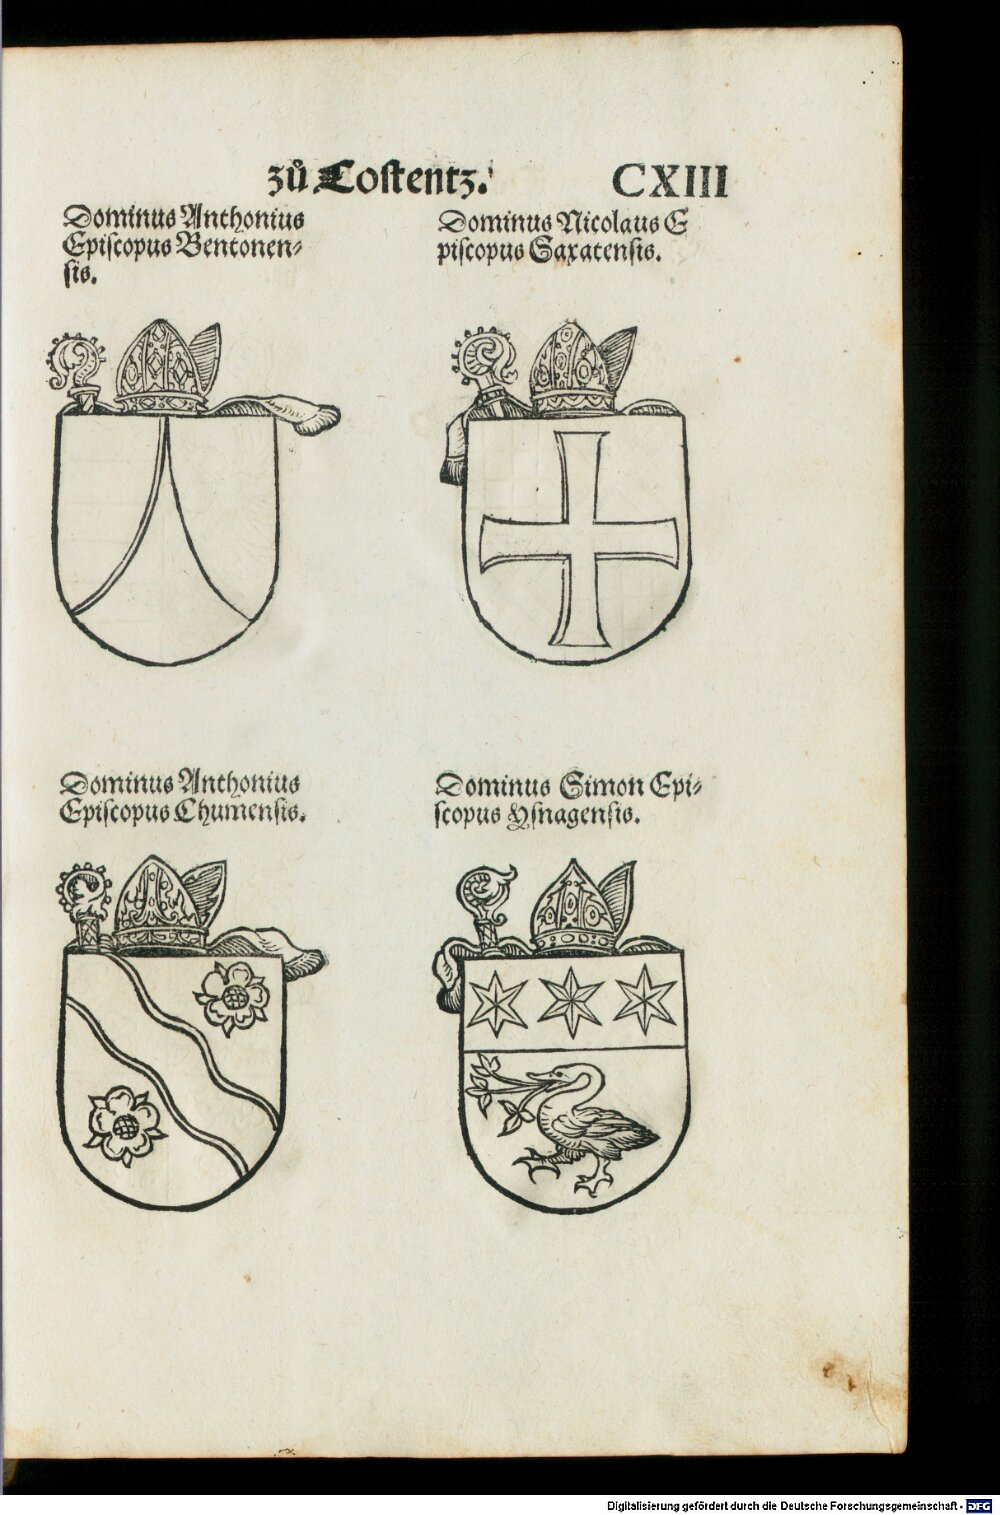 zů Costentz.
CXIII
Dominus Anthonius
Episcopus Bentonen-
sis.
Dominus Nicolaus E
piscopus Saxatensis.
Dominus Anthonius
Episcopus Chumensis.
Dominus Simon Epi-
scopus Ysnagensis.
Digitalisierung gefördert durch die Deutsche Forschungsgemeinschaft - DFG